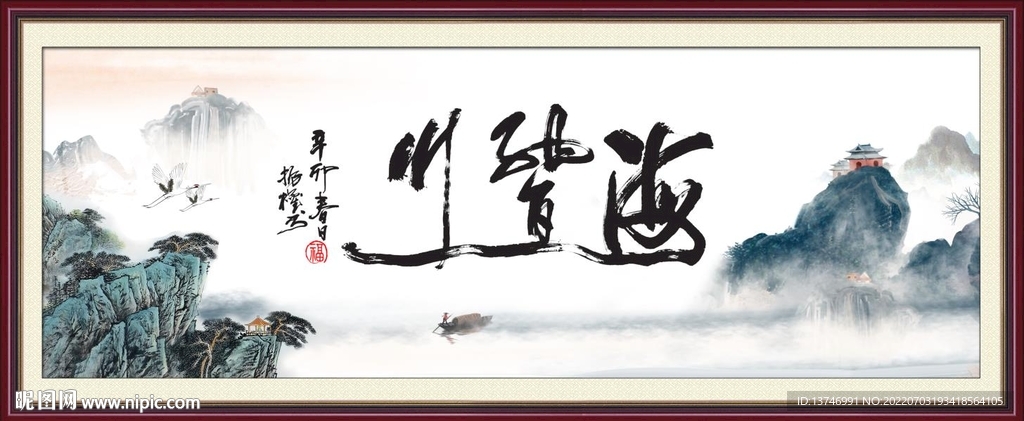 海纳百川
辛卯春日
福
昵图网 www.nipic.com
ID:13746991 NO:20220703193418564105